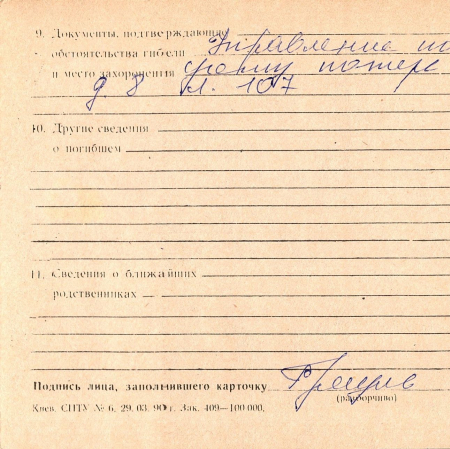 9. Документы, подтверждающие Управление по
обстоятельства гибели
и место захоронения учету потерь
д. 8 л. 107
10. Другие сведения
о погибшем
11. Сведения о ближайших
родственниках
Подпись лица, заполнившего карточку
(разборчиво)
Киев. СПТУ № 6. 29. 03. 90 г. Зак. 409—100 000.